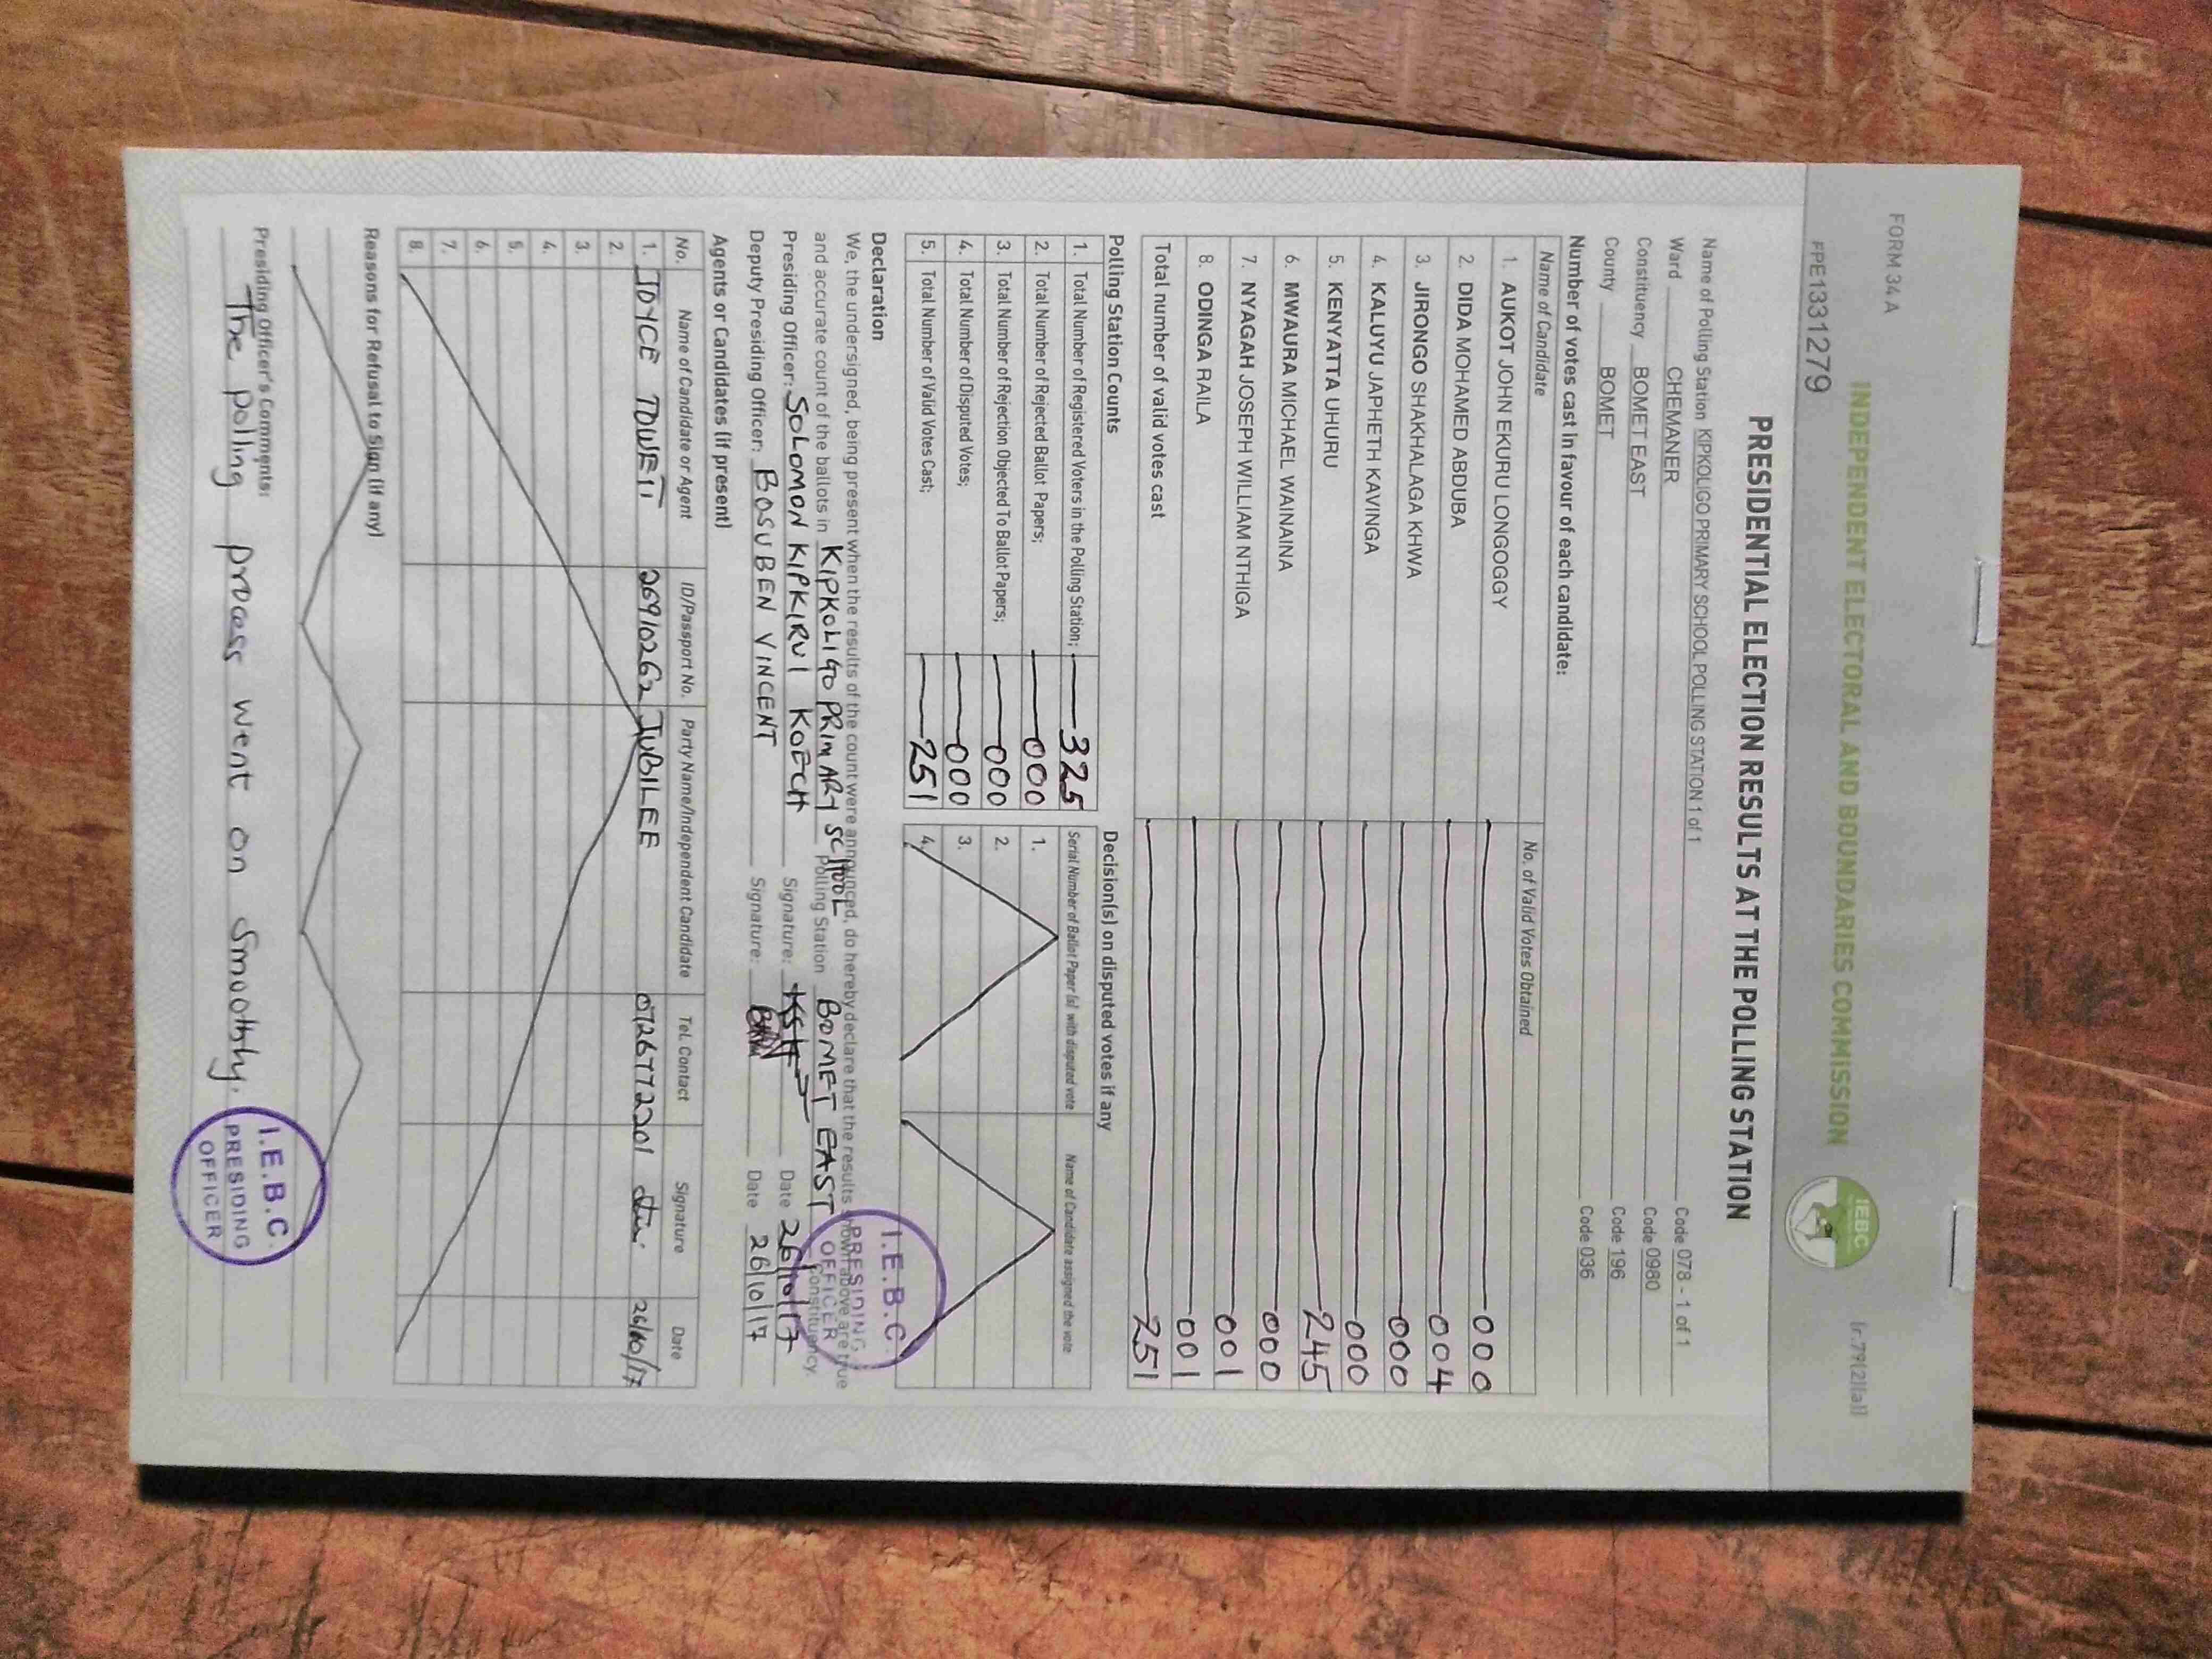 FORM 34 A
(r.79(2)(a))
INDEPENDENT ELECTORAL AND BOUNDARIES COMMISSION
IEBC
FPE1331279
PRESIDENTIAL ELECTION RESULTS AT THE POLLING STATION
Name of Polling Station KIPKOLIGO PRIMARY SCHOOL POLLING STATION 1 of 1 Code 078 - 1 of 1
Ward CHEMANER Code 0980
Constituency BOMET EAST Code 196
County BOMET Code 036
Number of votes cast in favour of each candidate:
Name of Candidate No. of Valid Votes Obtained
1. AUKOT JOHN EKURU LONGOGGY 000
2. DIDA MOHAMED ABDUBA 004
3. JIRONGO SHAKHALAGA KHWA 000
4. KALUYU JAPHETH KAVINGA 000
5. KENYATTA UHURU 245
6. MWAURA MICHAEL WAINAINA 000
7. NYAGAH JOSEPH WILLIAM NTHIGA 001
8. ODINGA RAILA 001
Total number of valid votes cast 251
Polling Station Counts Decision(s) on disputed votes if any
1. Total Number of Registered Voters in the Polling Station; 325 Serial Number of Ballot Paper (s) with disputed vote Name of Candidate assigned the vote
2. Total Number of Rejected Ballot Papers; 000 1.
3. Total Number of Rejection Objected To Ballot Papers; 000 2.
4. Total Number of Disputed Votes; 000 3.
5. Total Number of Valid Votes Cast; 251 4.
Declaration
We, the undersigned, being present when the results of the count were announced, do hereby declare that the results shown above are true
and accurate count of the ballots in KIPKOLIGO PRIMARY SCHOOL Polling Station BOMET EAST Constituency.
Presiding Officer: SOLOMON KIPKIRUI KOECH Signature: Date 26/10/17
Deputy Presiding Officer: BOSUBEN VINCENT Signature: Date 26/10/17
I.E.B.C.
PRESIDING
OFFICER
Agents or Candidates (if present)
No. Name of Candidate or Agent ID/Passport No. Party Name/Independent Candidate Tel. Contact Signature Date
1. JOYCE TOWETT JUBILEE 26/10/17
2.
3.
4.
5.
6.
7.
8.
Reasons for Refusal to Sign (if any)
Presiding Officer's Comments:
The polling process went on smoothly.
I.E.B.C.
PRESIDING
OFFICER